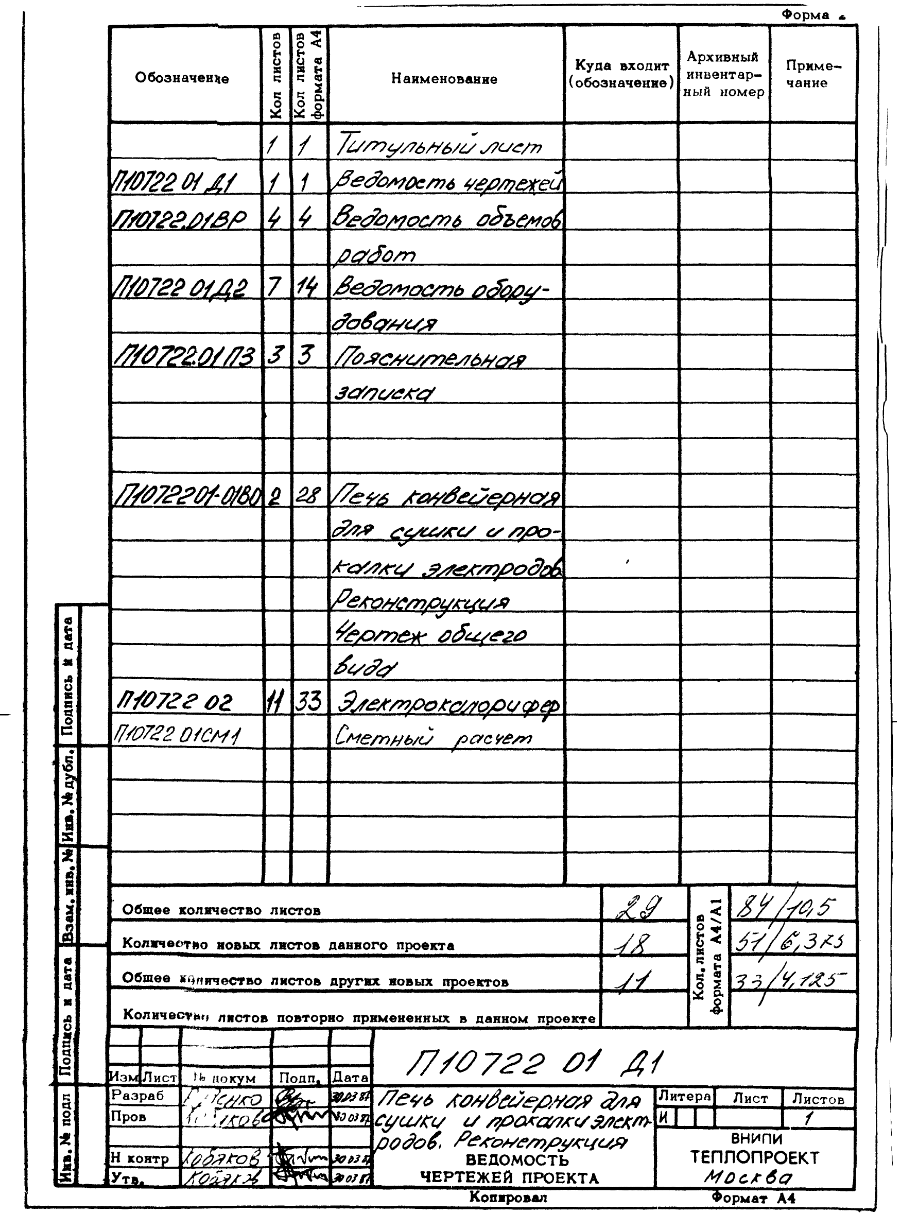 Форма
Обозначение Кол листов Кол листов формата А4 Наименование Куда входит (обозначение) Архивный инвентарный номер Примечание
1 1 Титульный лист
П10722 01 Д1 1 1 Ведомость чертежей
П10722.01ВР 4 4 Ведомость объемов
работ
П10722 01Д2 7 14 Ведомость обору-
дования
П10722.01ПЗ 3 3 Пояснительная
записка
П1072201-01ВО 2 28 Печь конвейерная
для сушки и про-
калки электродов
Реконструкция
Чертеж общего
вида
П10722 02 11 33 Электрокалорифер
П10722 01СМ1 Сметный расчет
Общее количество листов 29
Количество новых листов данного проекта 18
Общее количество листов других новых проектов 11
Количество листов повторно примененных в данном проекте
Кол. листов формата А4/А1
84/10,5
51/6,375
33/4,125
Подпись и дата
Инв. № дубл.
Взам. инв. №
Подпись и дата
Инв. № подл
П10722 01 Д1
Изм Лист № докум Подп. Дата
Разраб 30.03.87
Пров 30 03 87
Н контр Кобяков 30.03.87
Утв. Кобяков 30 03 87
Печь конвейерная для
сушки и прокалки элект-
родов. Реконструкция
ВЕДОМОСТЬ
ЧЕРТЕЖЕЙ ПРОЕКТА
Литера Лист Листов
И 1
ВНИПИ
ТЕПЛОПРОЕКТ
Москва
Копировал Формат А4